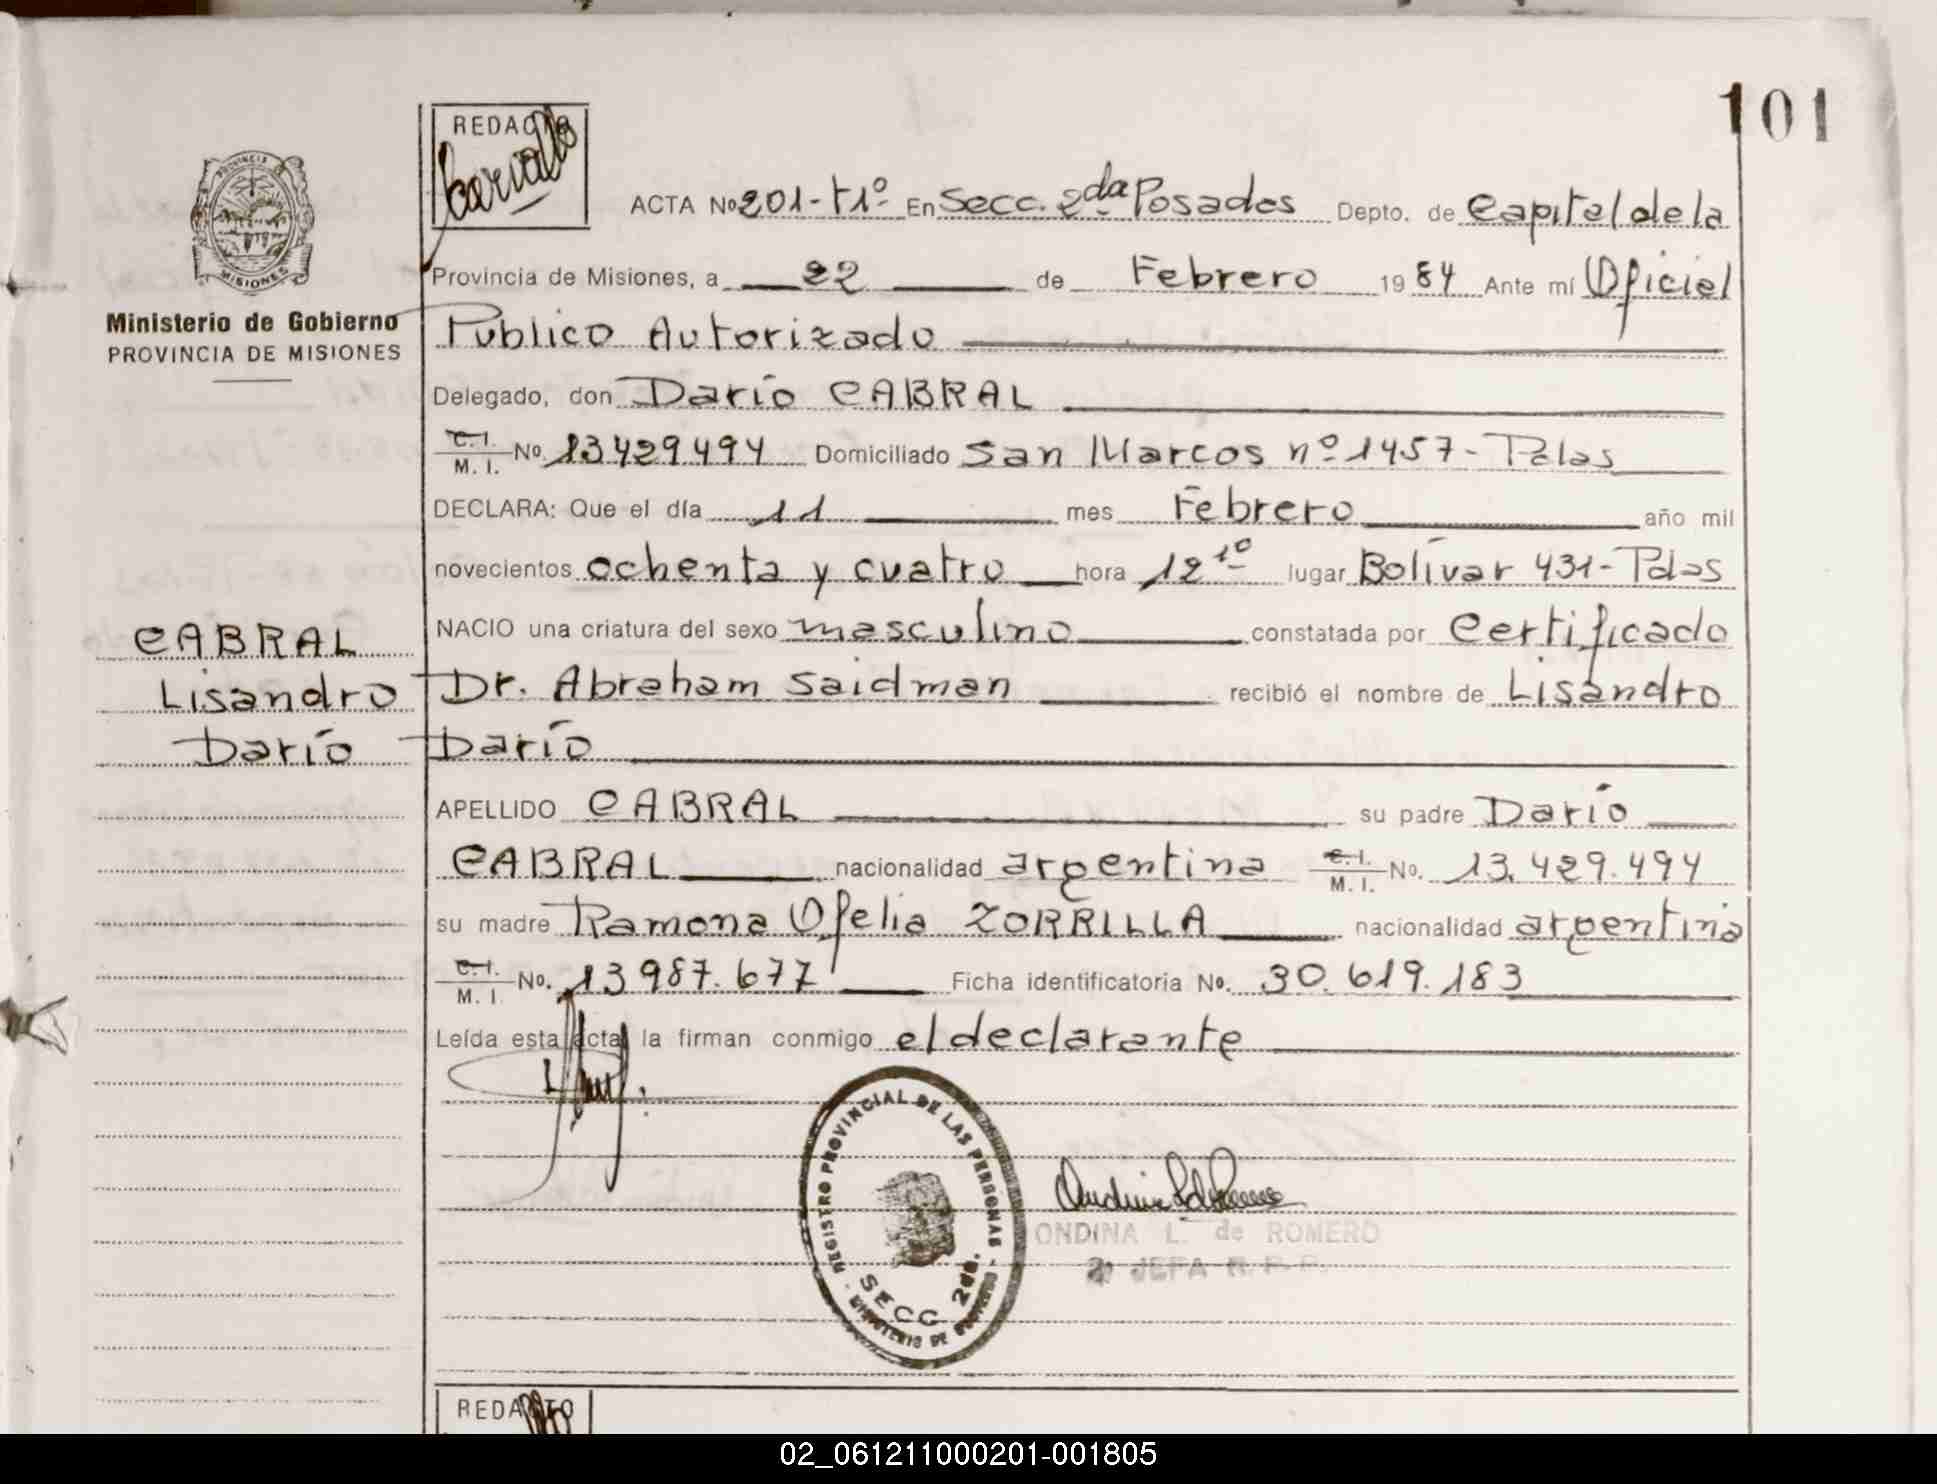 101
REDACTO
Carvallo
ACTA Nº 201-t1º En Secc. 2da Posadas Depto. de Capital de la
PROVINCIA MISIONES
Provincia de Misiones, a 22 de Febrero 1984 Ante mí Oficial
Ministerio de Gobierno
PROVINCIA DE MISIONES
Publico Autorizado
Delegado, don Darío CABRAL
C.I. M.I. Nº 13429494 Domiciliado San Marcos nº 1457- Pdas
DECLARA: Que el día 11 mes Febrero año mil
novecientos ochenta y cuatro hora 12 10 lugar Bolívar 431- Pdas
NACIO una criatura del sexo masculino constatada por Certificado
CABRAL
Lisandro
Darío
Dr. Abraham Saidman recibió el nombre de Lisandro
Darío
APELLIDO CABRAL su padre Darío
CABRAL nacionalidad argentina C.I. M.I. No. 13.429.494
su madre Ramona Ofelia ZORRILLA nacionalidad argentina
C.I. M.I. No. 13 987.677 Ficha identificatoria Nº. 30.619.183
Leída esta acta la firman conmigo el declarante
REGISTRO PROVINCIAL DE LAS PERSONAS
SECC. 2da.
MINISTERIO DE GOBIERNO
ONDINA L. de ROMERO
2º JEFA R.P.P.
REDACTO
02_061211000201-001805